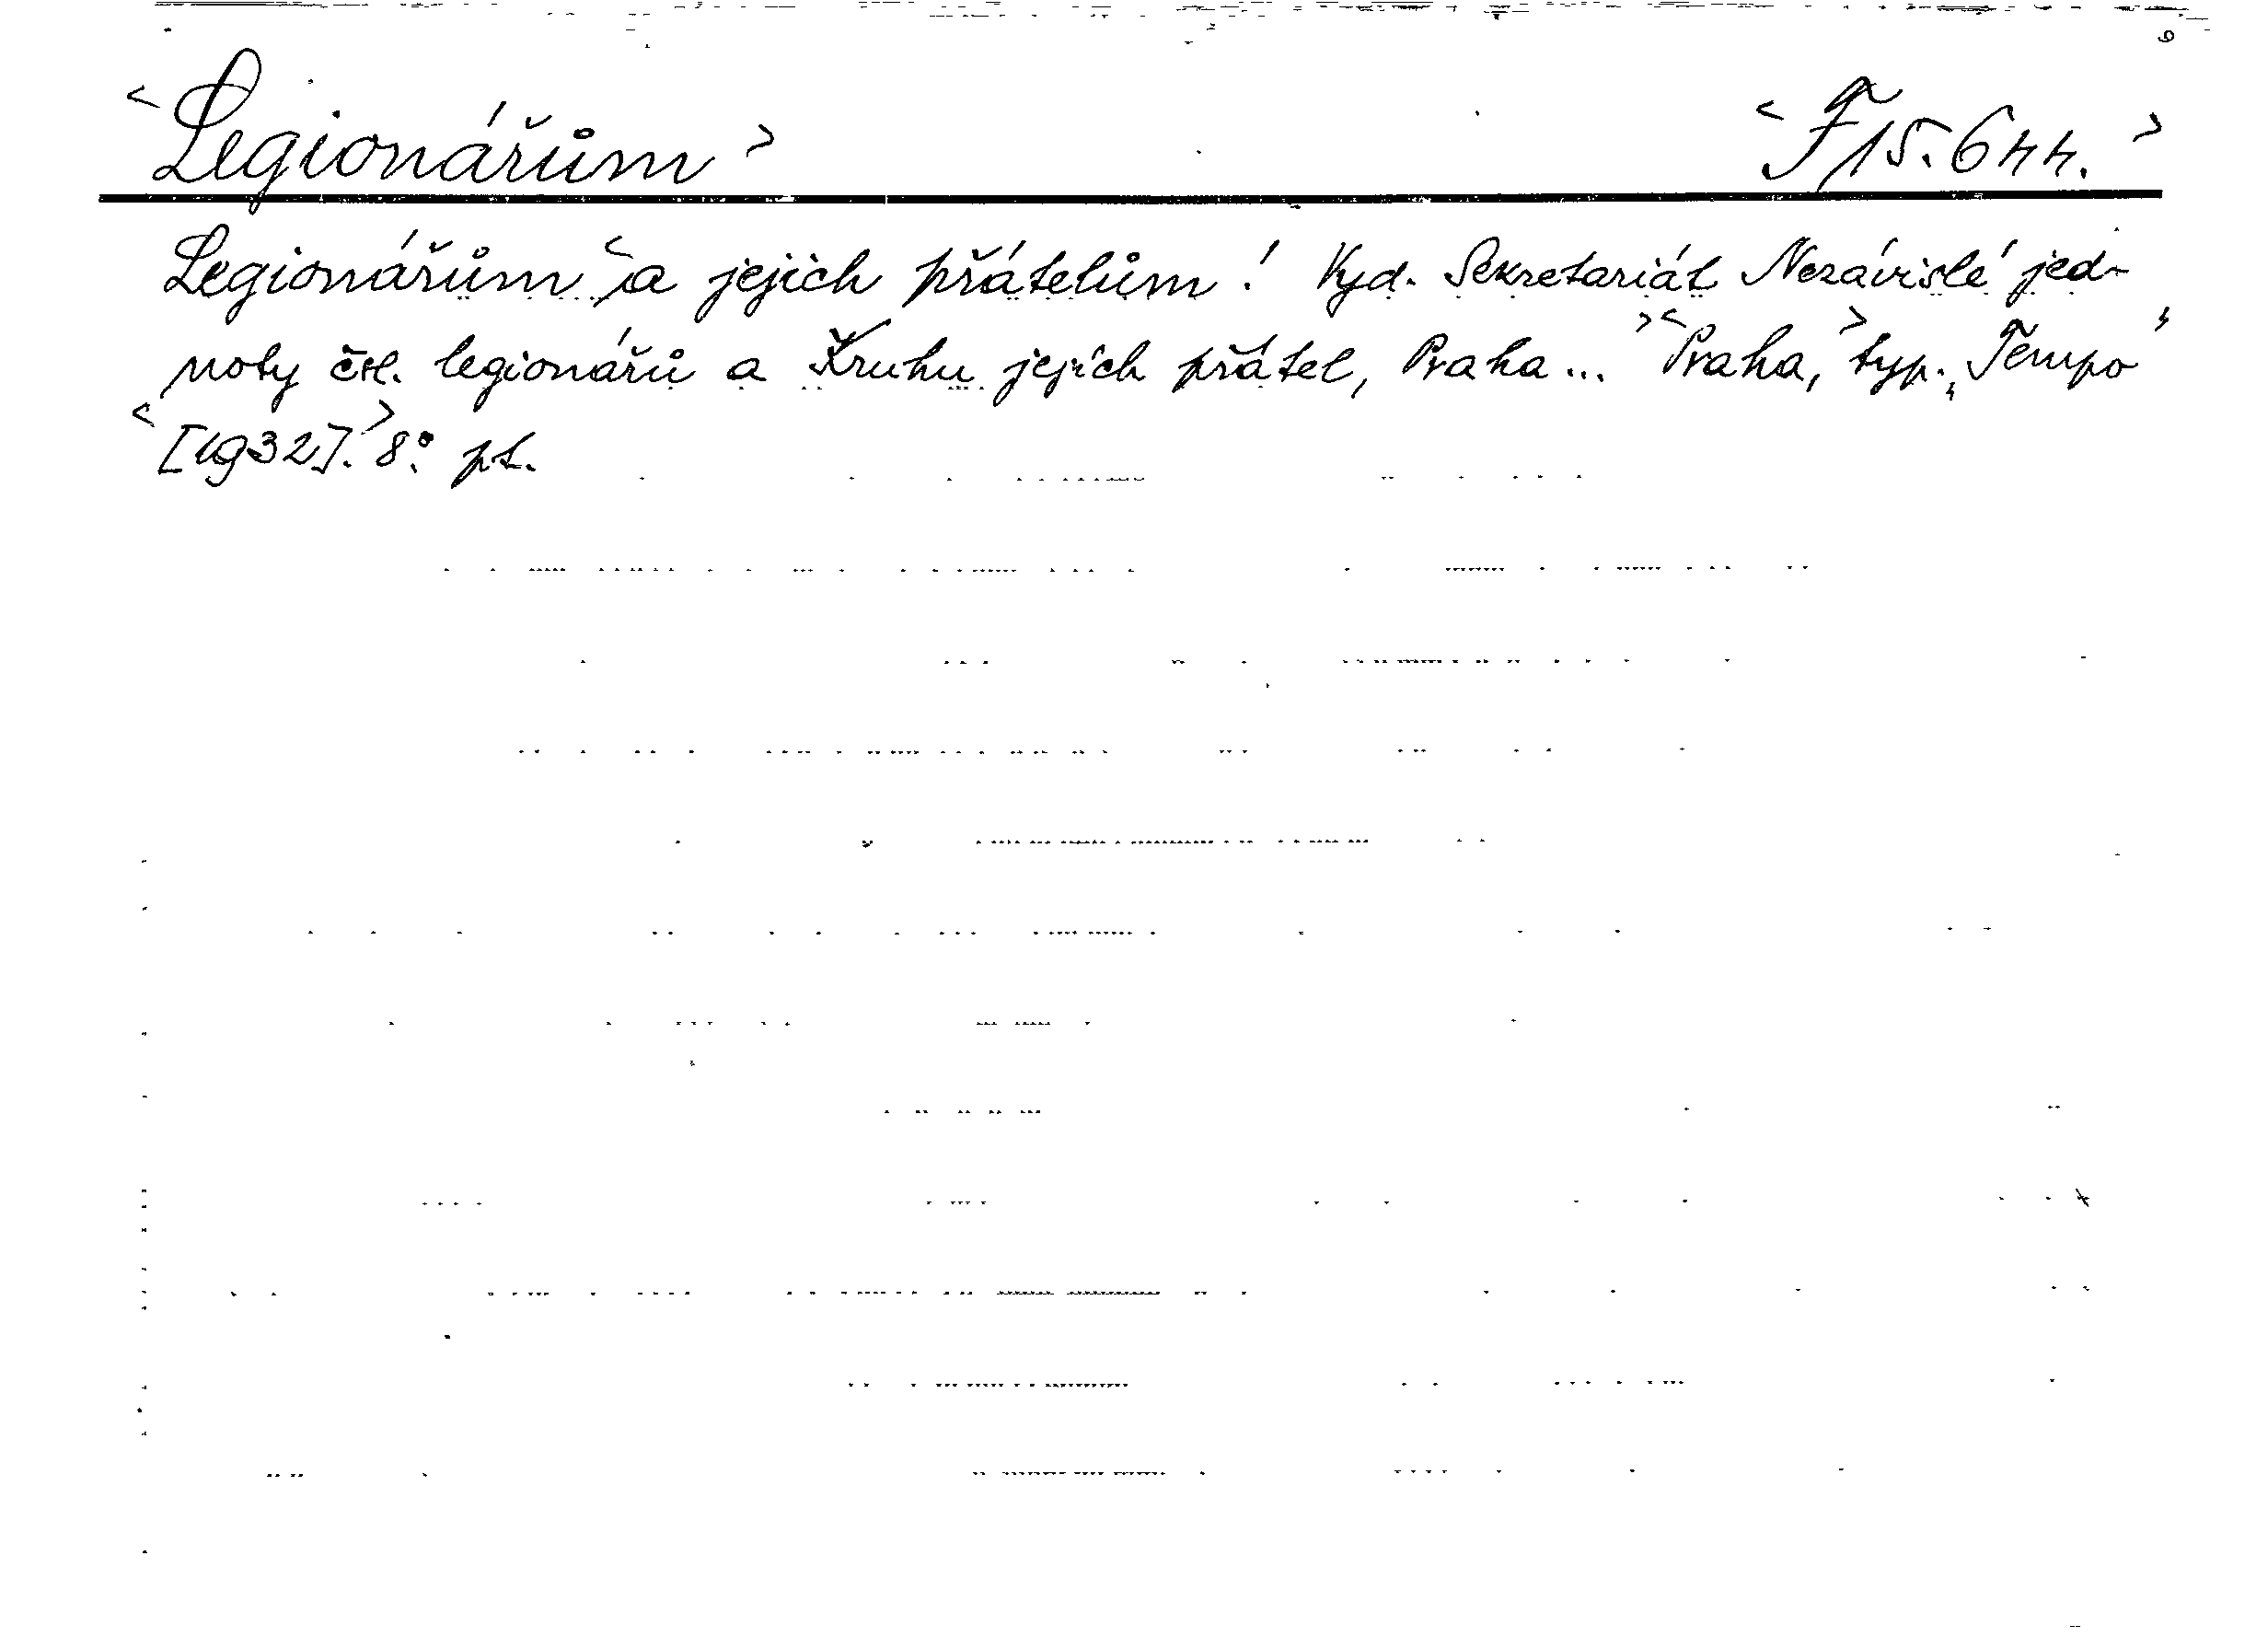 <Legionářům> <F 15.644.>
Legionářům <a jejich přátelům! Vyd. Sekretariát Nezávislé jed-
noty čsl. legionářů a Kruhu jejich přátel, Praha...> <Praha,> typ. „Tempo"
<[1932].> 8°. pt.